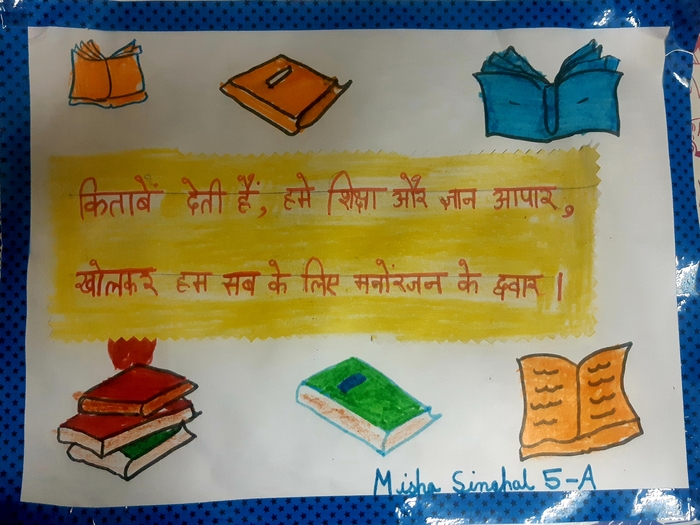 किताबें देती हैं, हमे शिक्षा और ज्ञान आपार,
खोलकर हम सब के लिए मनोंरजन के द्वार ।
Misha Singhal 5-A